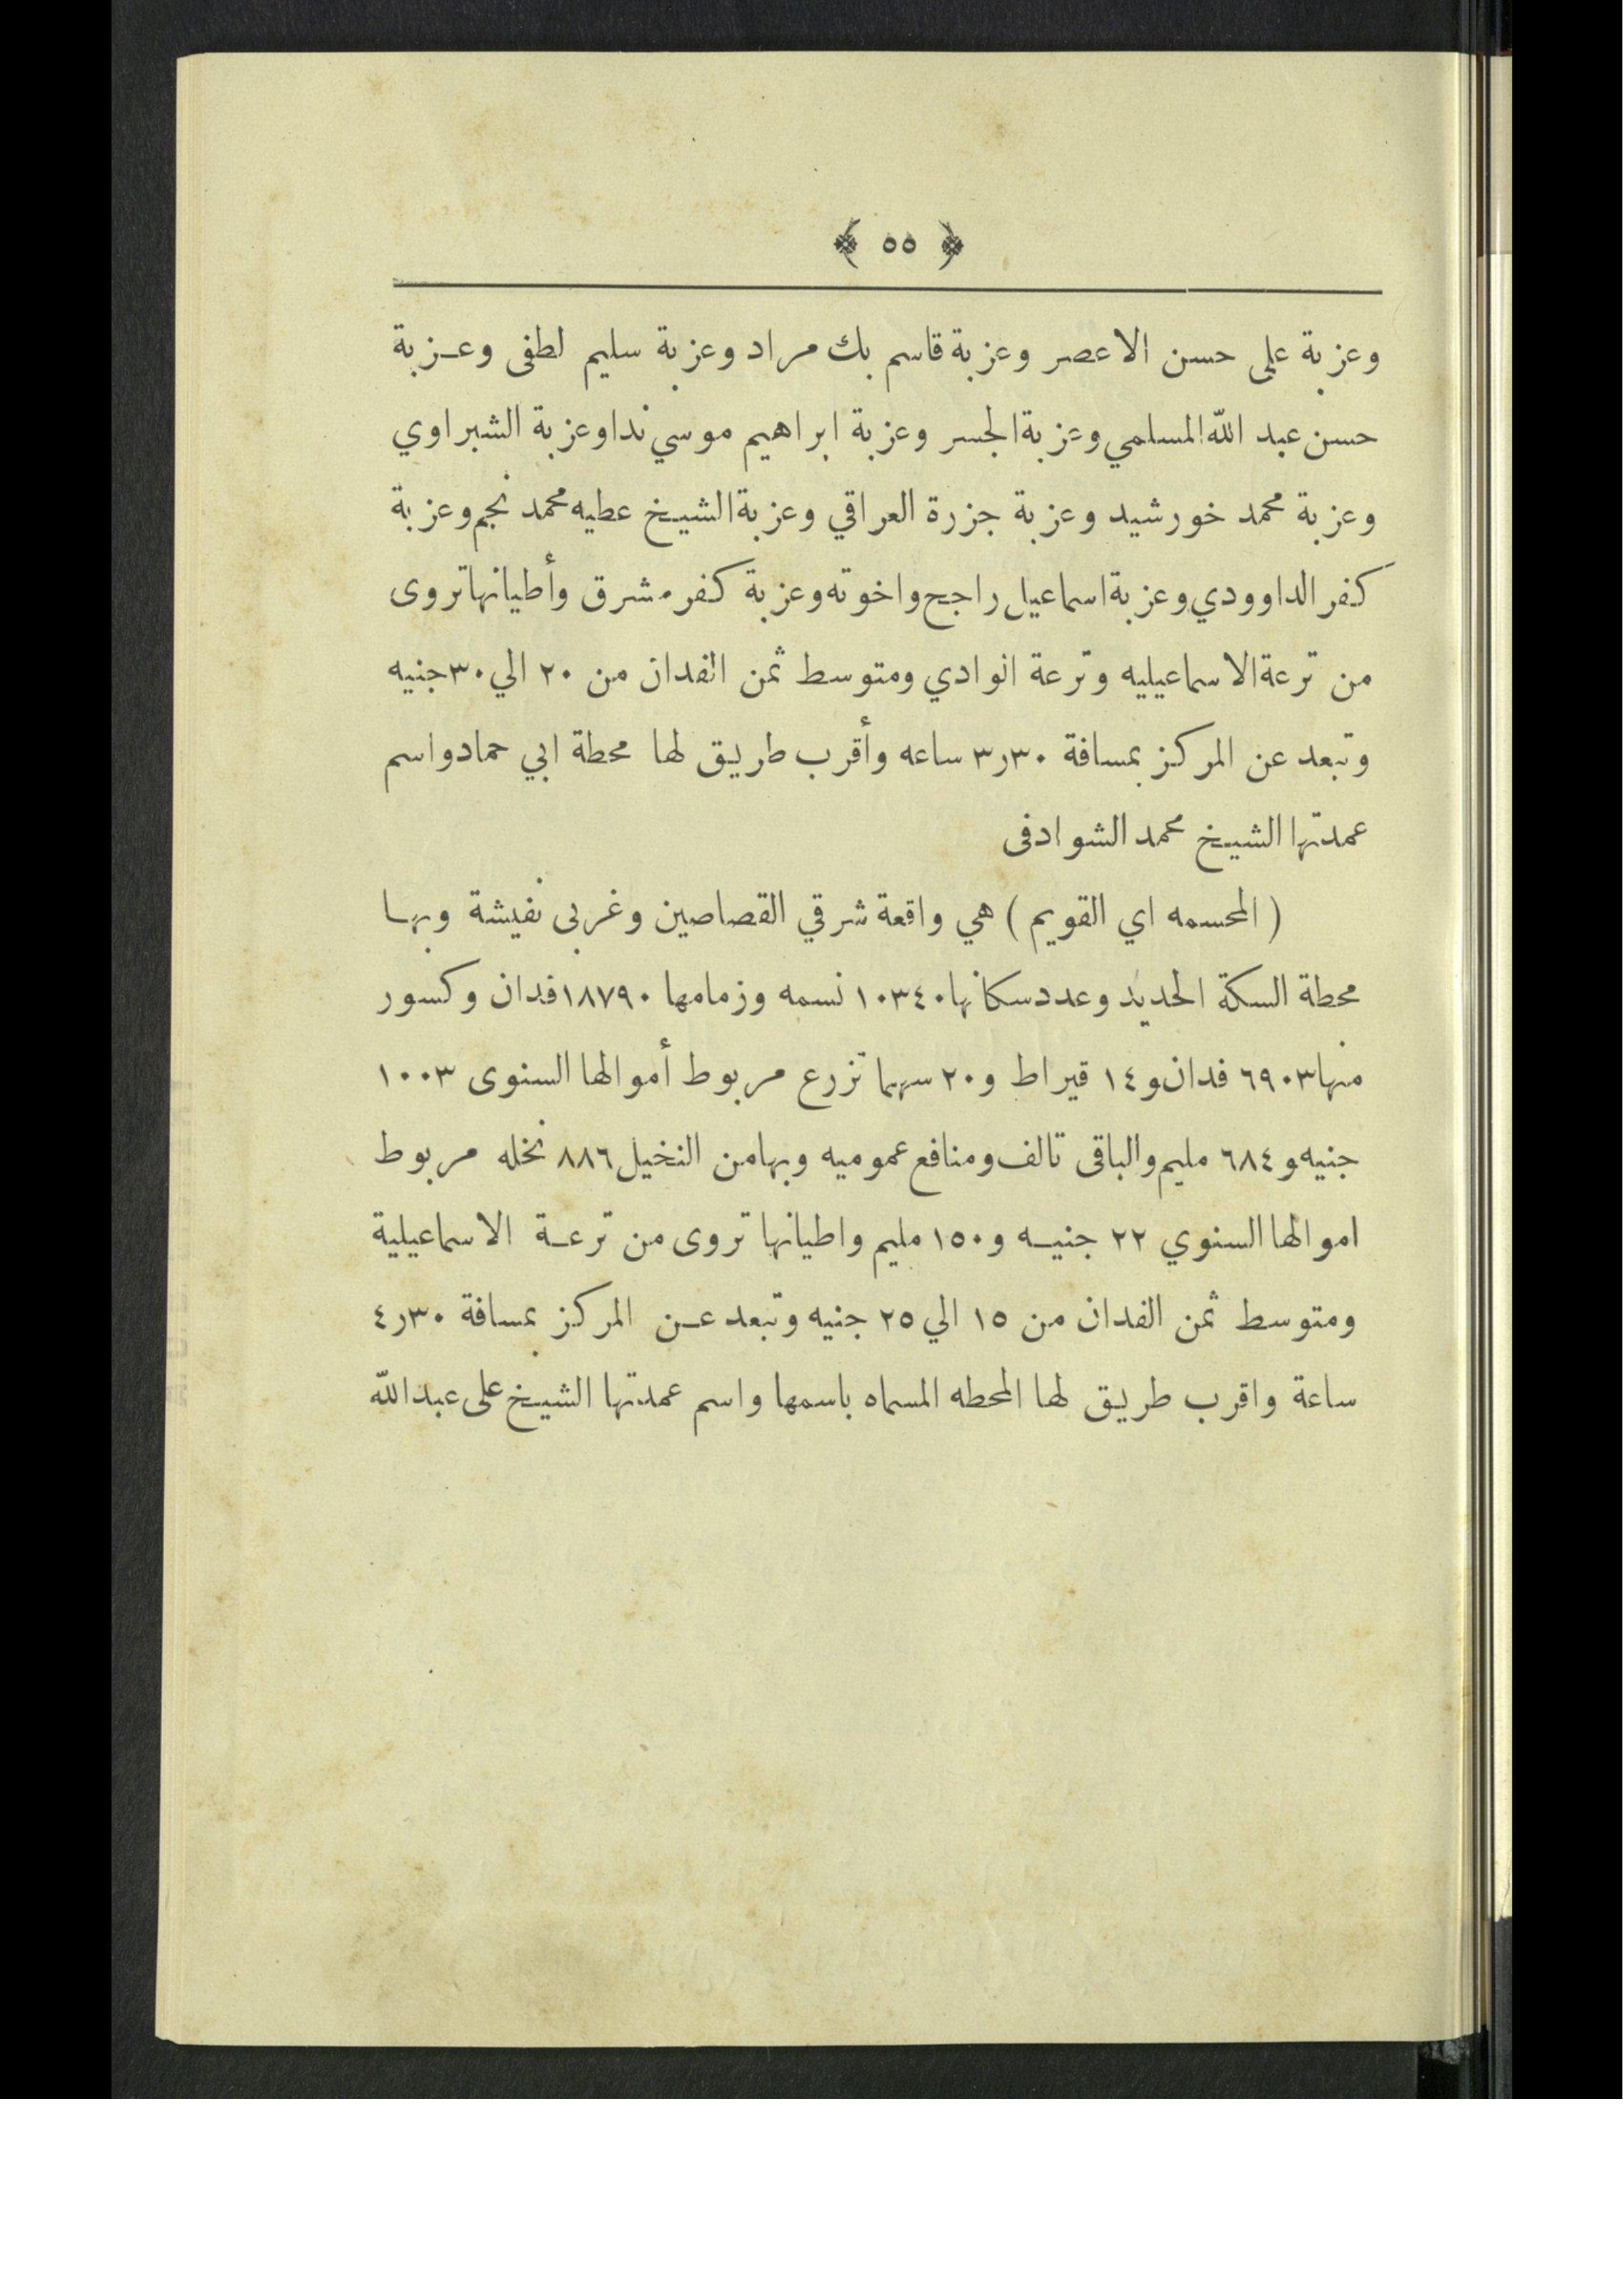 ﴿ ٥٥ ﴾
وعزبة على حسن الاعصر وعزبة قاسم بك مراد وعزبة سليم لطفى وعزبة
حسن عبد الله المسلمي وعزبة الجسر وعزبة ابراهيم موسي ندا وعزبة الشبراوي
وعزبة محمد خورشيد وعزبة جزرة العراقي وعزبة الشيخ عطيه محمد نجم وعزبة
كفر الداوودي وعزبة اسماعيل راجح واخوته وعزبة كفر مشرق وأطيانها تروى
من ترعة الاسماعيليه وترعة الوادي ومتوسط ثمن الفدان من ٢٠ الي ٣٠ جنيه
وتبعد عن المركز بمسافة ٣٠ر٣ ساعه وأقرب طريق لها محطة ابي حماد واسم
عمدتها الشيخ محمد الشوادفى
( المحسمه اي القويم ) هي واقعة شرقي القصاصين وغربى نفيشة وبها
محطة السكة الحديد وعدد سكانها ١٠٣٤٠ نسمه وزمامها ١٨٧٩٠ فدان وكسور
منها ٦٩٠٣ فدان و١٤ قيراط و٢٠ سهما تزرع مربوط أموالها السنوى ١٠٠٣
جنيه و٦٨٤ مليم والباقى تالف ومنافع عموميه وبها من النخيل ٨٨٦ نخله مربوط
اموالها السنوي ٢٢ جنيه و١٥٠ مليم واطيانها تروى من ترعة الاسماعيلية
ومتوسط ثمن الفدان من ١٥ الي ٢٥ جنيه وتبعد عن المركز بمسافة ٣٠ر٤
ساعة واقرب طريق لها المحطه المسماه باسمها واسم عمدتها الشيخ على عبد الله